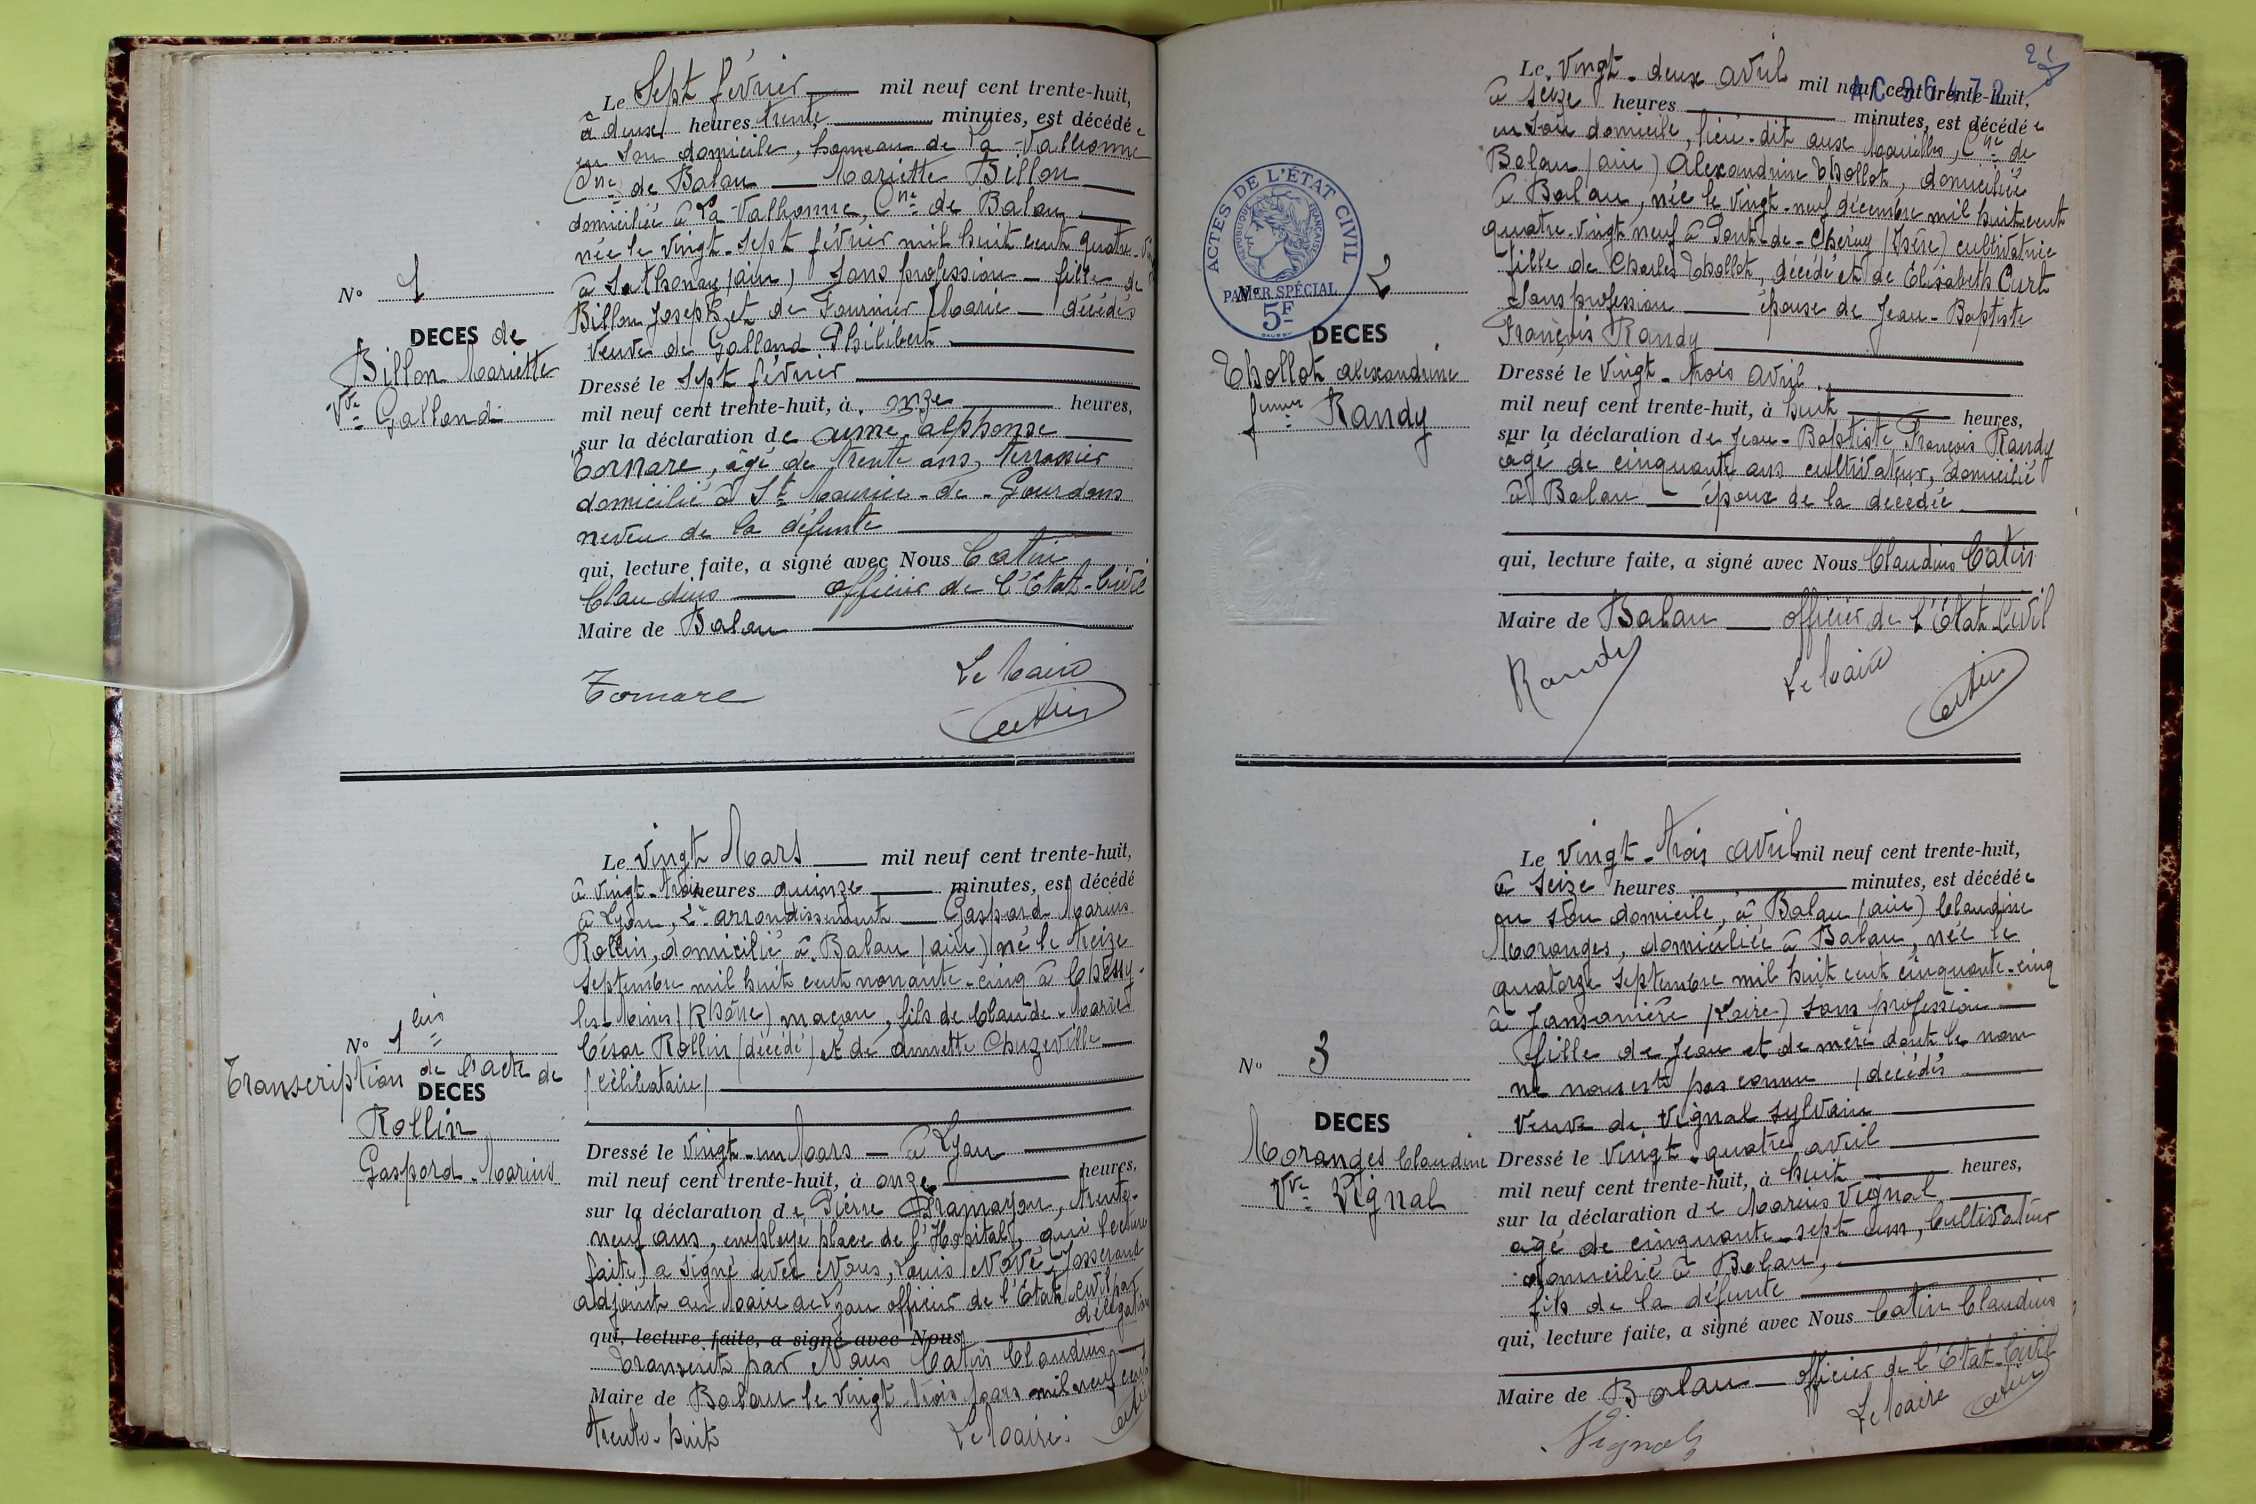 Le Sept février mil neuf cent trente-huit,
à deux heures trente minutes, est décédée
en son domicile, hameau de La Valbonne
Cne de Balan Mariette Billon
domiciliée à La Valbonne, Cne de Balan
née le vingt-sept février mil huit cent quatre-
à Sathonay (ain) sans profession fille de
Billon Joseph et de Fournier Marie décédés
veuve de Galland Philibert
N° 1
DECES de
Billon Mariette
Vve Galland
Dressé le sept février
mil neuf cent trente-huit, à onze heures,
sur la déclaration de aimé alphonse
Tornare, âgé de trente ans, terrassier
domicilié à St Maurice-de-Gourdans
neveu de la défunte
qui, lecture faite, a signé avec Nous Catin
Claudius officier de l'Etat-Civil
Maire de Balan
Tornare Le Maire
Catin
Le vingt Mars mil neuf cent trente-huit,
à vingt-trois heures quinze minutes, est décédé
à Lyon, 2e arrondissement Gaspard Marius
Rollin, domicilié à Balan (ain) né le treize
septembre mil huit cent nonante-cinq à Chessy-
les-Mines (Rhône) maçon, fils de Claude-Marie
César Rollin (décédé) et de annette Chuzeville
(célibataire)
N° 1 bis
Transcription de l'acte de
DECES
Rollin
Gaspard-Marius
Dressé le vingt-un Mars à Lyon
mil neuf cent trente-huit, à onze heures,
sur la déclaration de Pierre Framayon, trente-
neuf ans, employé place de l'Hopital, qui lecture
faite, a signé avec Nous, Louis Nové-Josserand
adjoint au Maire de Lyon officier de l'Etat civil par
délégation
qui, lecture faite, a signé avec Nous
Transcrit par Nous Catin Claudius
Maire de Balan le vingt-trois Mars mil neuf cent
trente-huit Le Maire:
Catin
AC 96472
Le vingt-deux avril mil neuf cent trente-huit,
à seize heures minutes, est décédée
en son domicile, lieu-dit aux Mouilles, Cne de
Balan (ain) Alexandrine Thollot, domiciliée
à Balan, née le vingt-neuf décembre mil huit cent
quatre-vingt neuf à Pont-de-Chéruy (Isère) cultivatrice
fille de Charles Thollot, décédé et de Elisabeth Curt
sans profession épouse de Jean-Baptiste
François Randy
ACTES DE L'ÉTAT CIVIL
RÉPUBLIQUE FRANÇAISE
PAPIER SPÉCIAL
5F
N° 2
DECES
Thollot alexandrine
femme Randy
Dressé le vingt-trois avril
mil neuf cent trente-huit, à huit heures,
sur la déclaration de Jean-Baptiste François Randy
agé de cinquante ans cultivateur, domicilié
à Balan époux de la décédée
qui, lecture faite, a signé avec Nous Claudius Catin
Maire de Balan officier de l'État Civil
Randy Le Maire
Catin
Le vingt-trois avril mil neuf cent trente-huit,
à seize heures minutes, est décédée
en son domicile, à Balan (ain) Claudine
Moranges, domiciliée à Balan, née le
quatorze septembre mil huit cent cinquante-cinq
à Jonsonnière (Loire) sans profession
fille de Jean et de mère dont le nom
ne nous est pas connu (décédés
veuve de Vignal Sylvain
N° 3
DECES
Moranges Claudine
Vve Vignal
Dressé le vingt-quatre avril
mil neuf cent trente-huit, à huit heures,
sur la déclaration de Marius Vignal
agé de cinquante-sept ans, Cultivateur
domicilié à Balan,
fils de la défunte
qui, lecture faite, a signé avec Nous Catin Claudius
Maire de Balan officier de l'Etat-Civil
Le Maire
Catin
Vignal